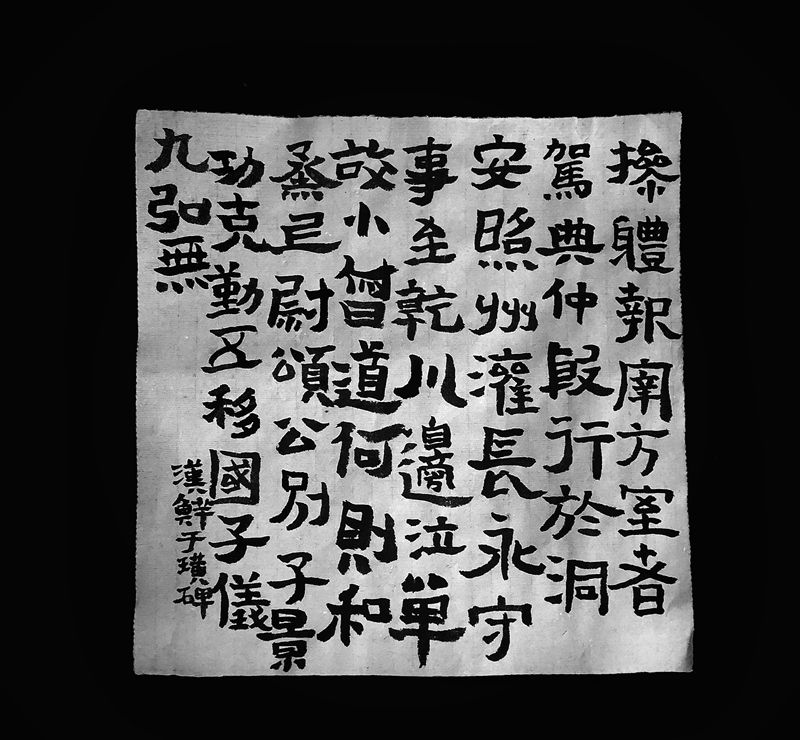 掺體報南方室者
駕典仲段行於洞
安照州灌長永守
事至乾川邊泣單
敬小曾道何則和
蒸已尉頌公別子景
功克勤五移國子儀
九弘無
漢鮮于璜碑